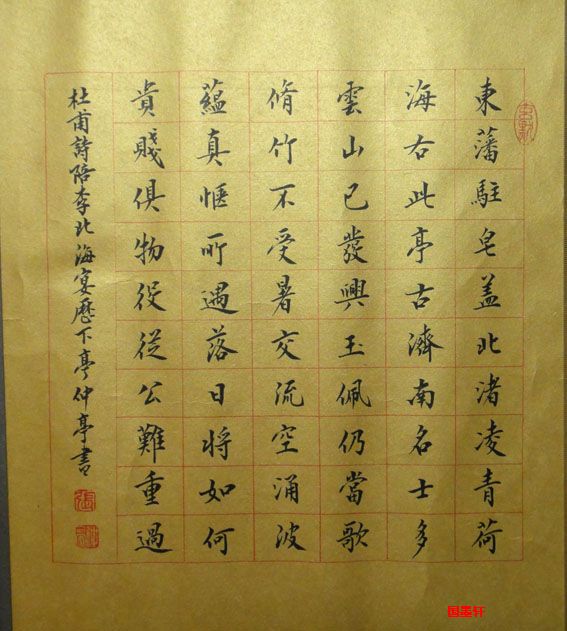 東藩駐皂盖北渚凌青荷
海右此亭古濟南名士多
雲山已發興玉佩仍當歌
脩竹不受暑交流空涌波
蘊真愜所遇落日将如何
貴賤俱物役從公難重過
杜甫詩陪李北海宴歷下亭仲亭書
国墨轩